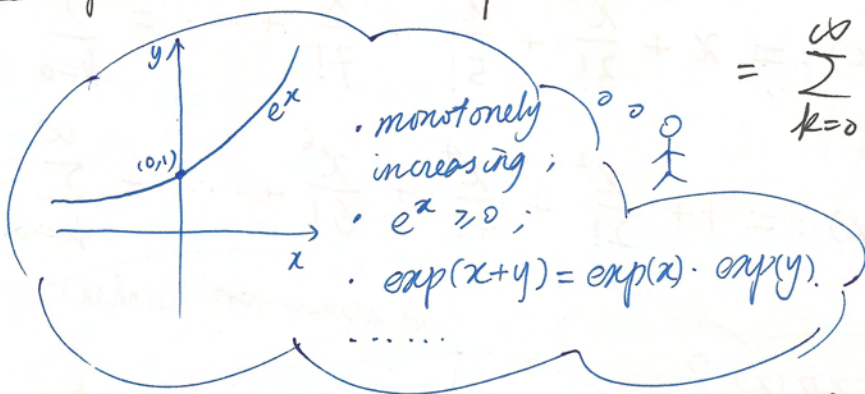 y
e^x
(0,1)
x
· monotonely
increasing ;
· e^x ⩾ 0 ;
· exp(x+y) = exp(x) · exp(y).
· · · · · ·
= ∑
∞
k=0